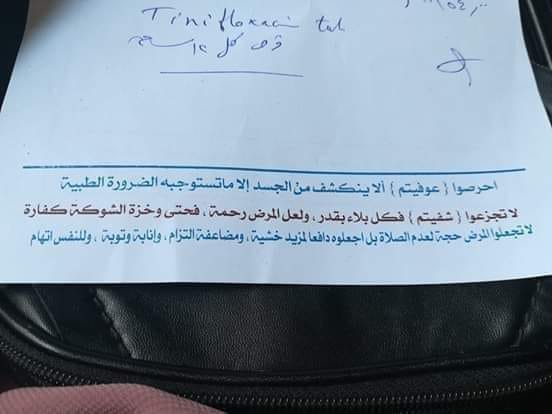 Tinifloxacin tab
قرص كل ١٢ ساعة
احرصوا { عوفيتم } ألا ينكشف من الجسد إلا ماتستوجبه الضرورة الطبية
لا تجزعوا { شفيتم } فكل بلاء بقدر ، ولعل المرض رحمة ، فحتى وخزة الشوكة كفارة
لا تجعلوا المرض حجة لعدم الصلاة بل اجعلوه دافعا لمزيد خشية ، ومضاعفة التزام ، وإنابة وتوبة ، وللنفس اتهام